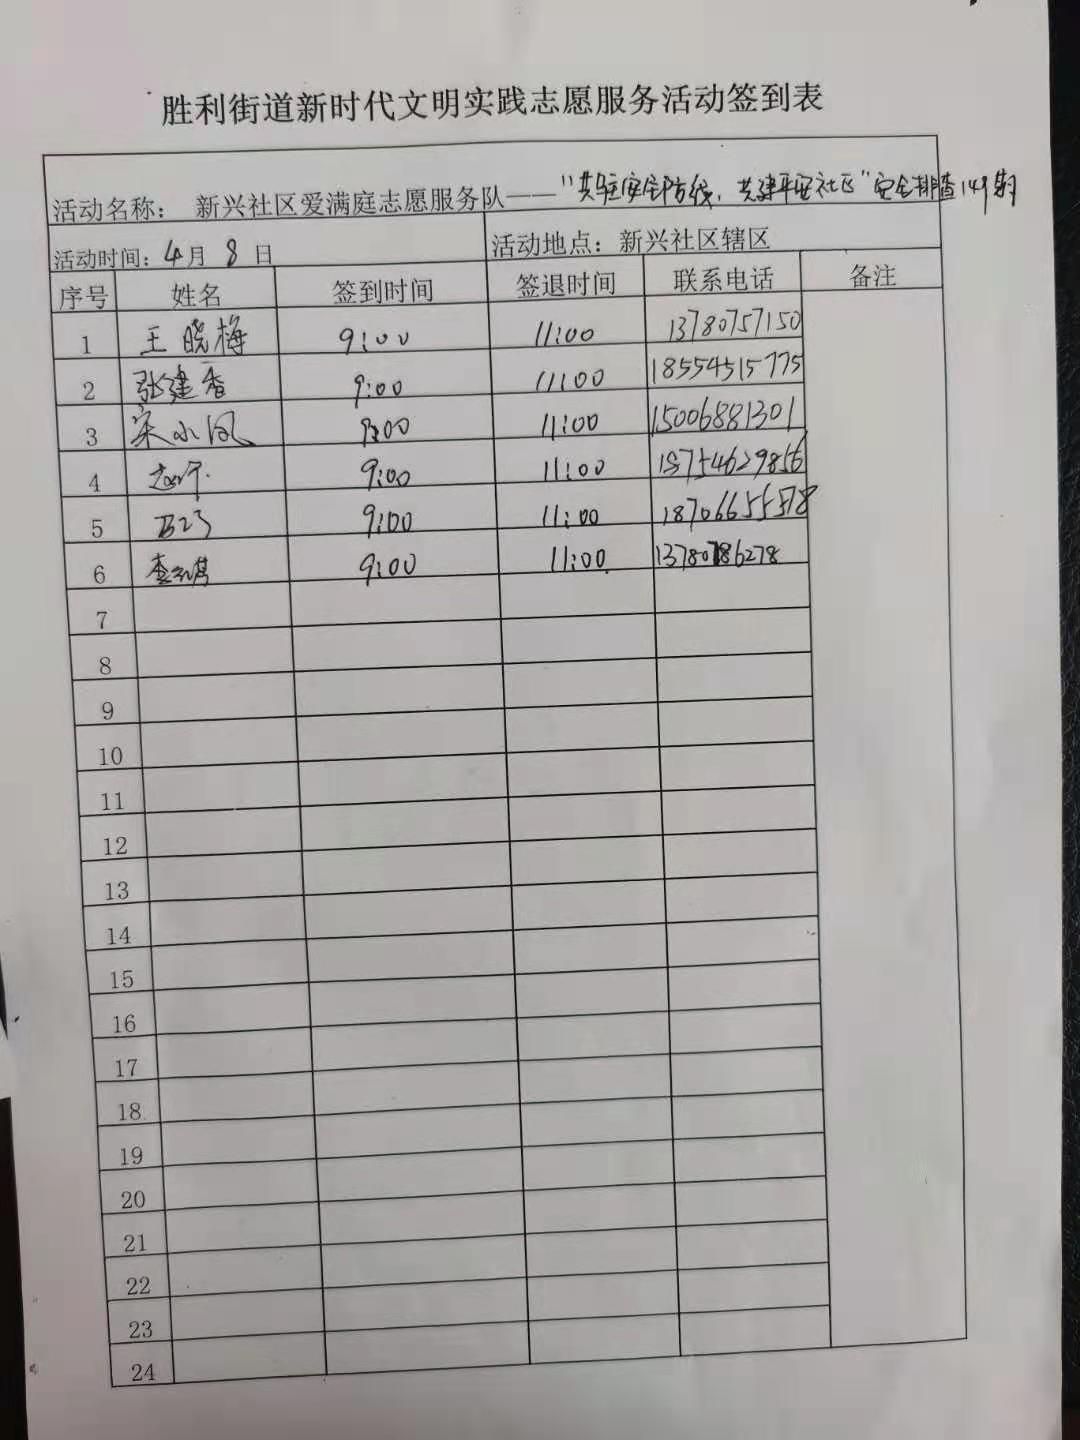 胜利街道新时代文明实践志愿服务活动签到表
活动名称： 新兴社区爱满庭志愿服务队——“共筑安全防线，共建平安社区”安全排查149期
活动时间：4月8日 活动地点：新兴社区辖区
序号 姓名 签到时间 签退时间 联系电话 备注
1 王晓梅 9:00 11:00 13780757150
2 张建香 9:00 11:00 18554515775
3 宋小凤 9:00 11:00 15006881301
4 9:00 11:00 18754629856
5 9:00 11:00 18706655578
6 9:00 11:00 13780786278
7
8
9
10
11
12
13
14
15
16
17
18
19
20
21
22
23
24